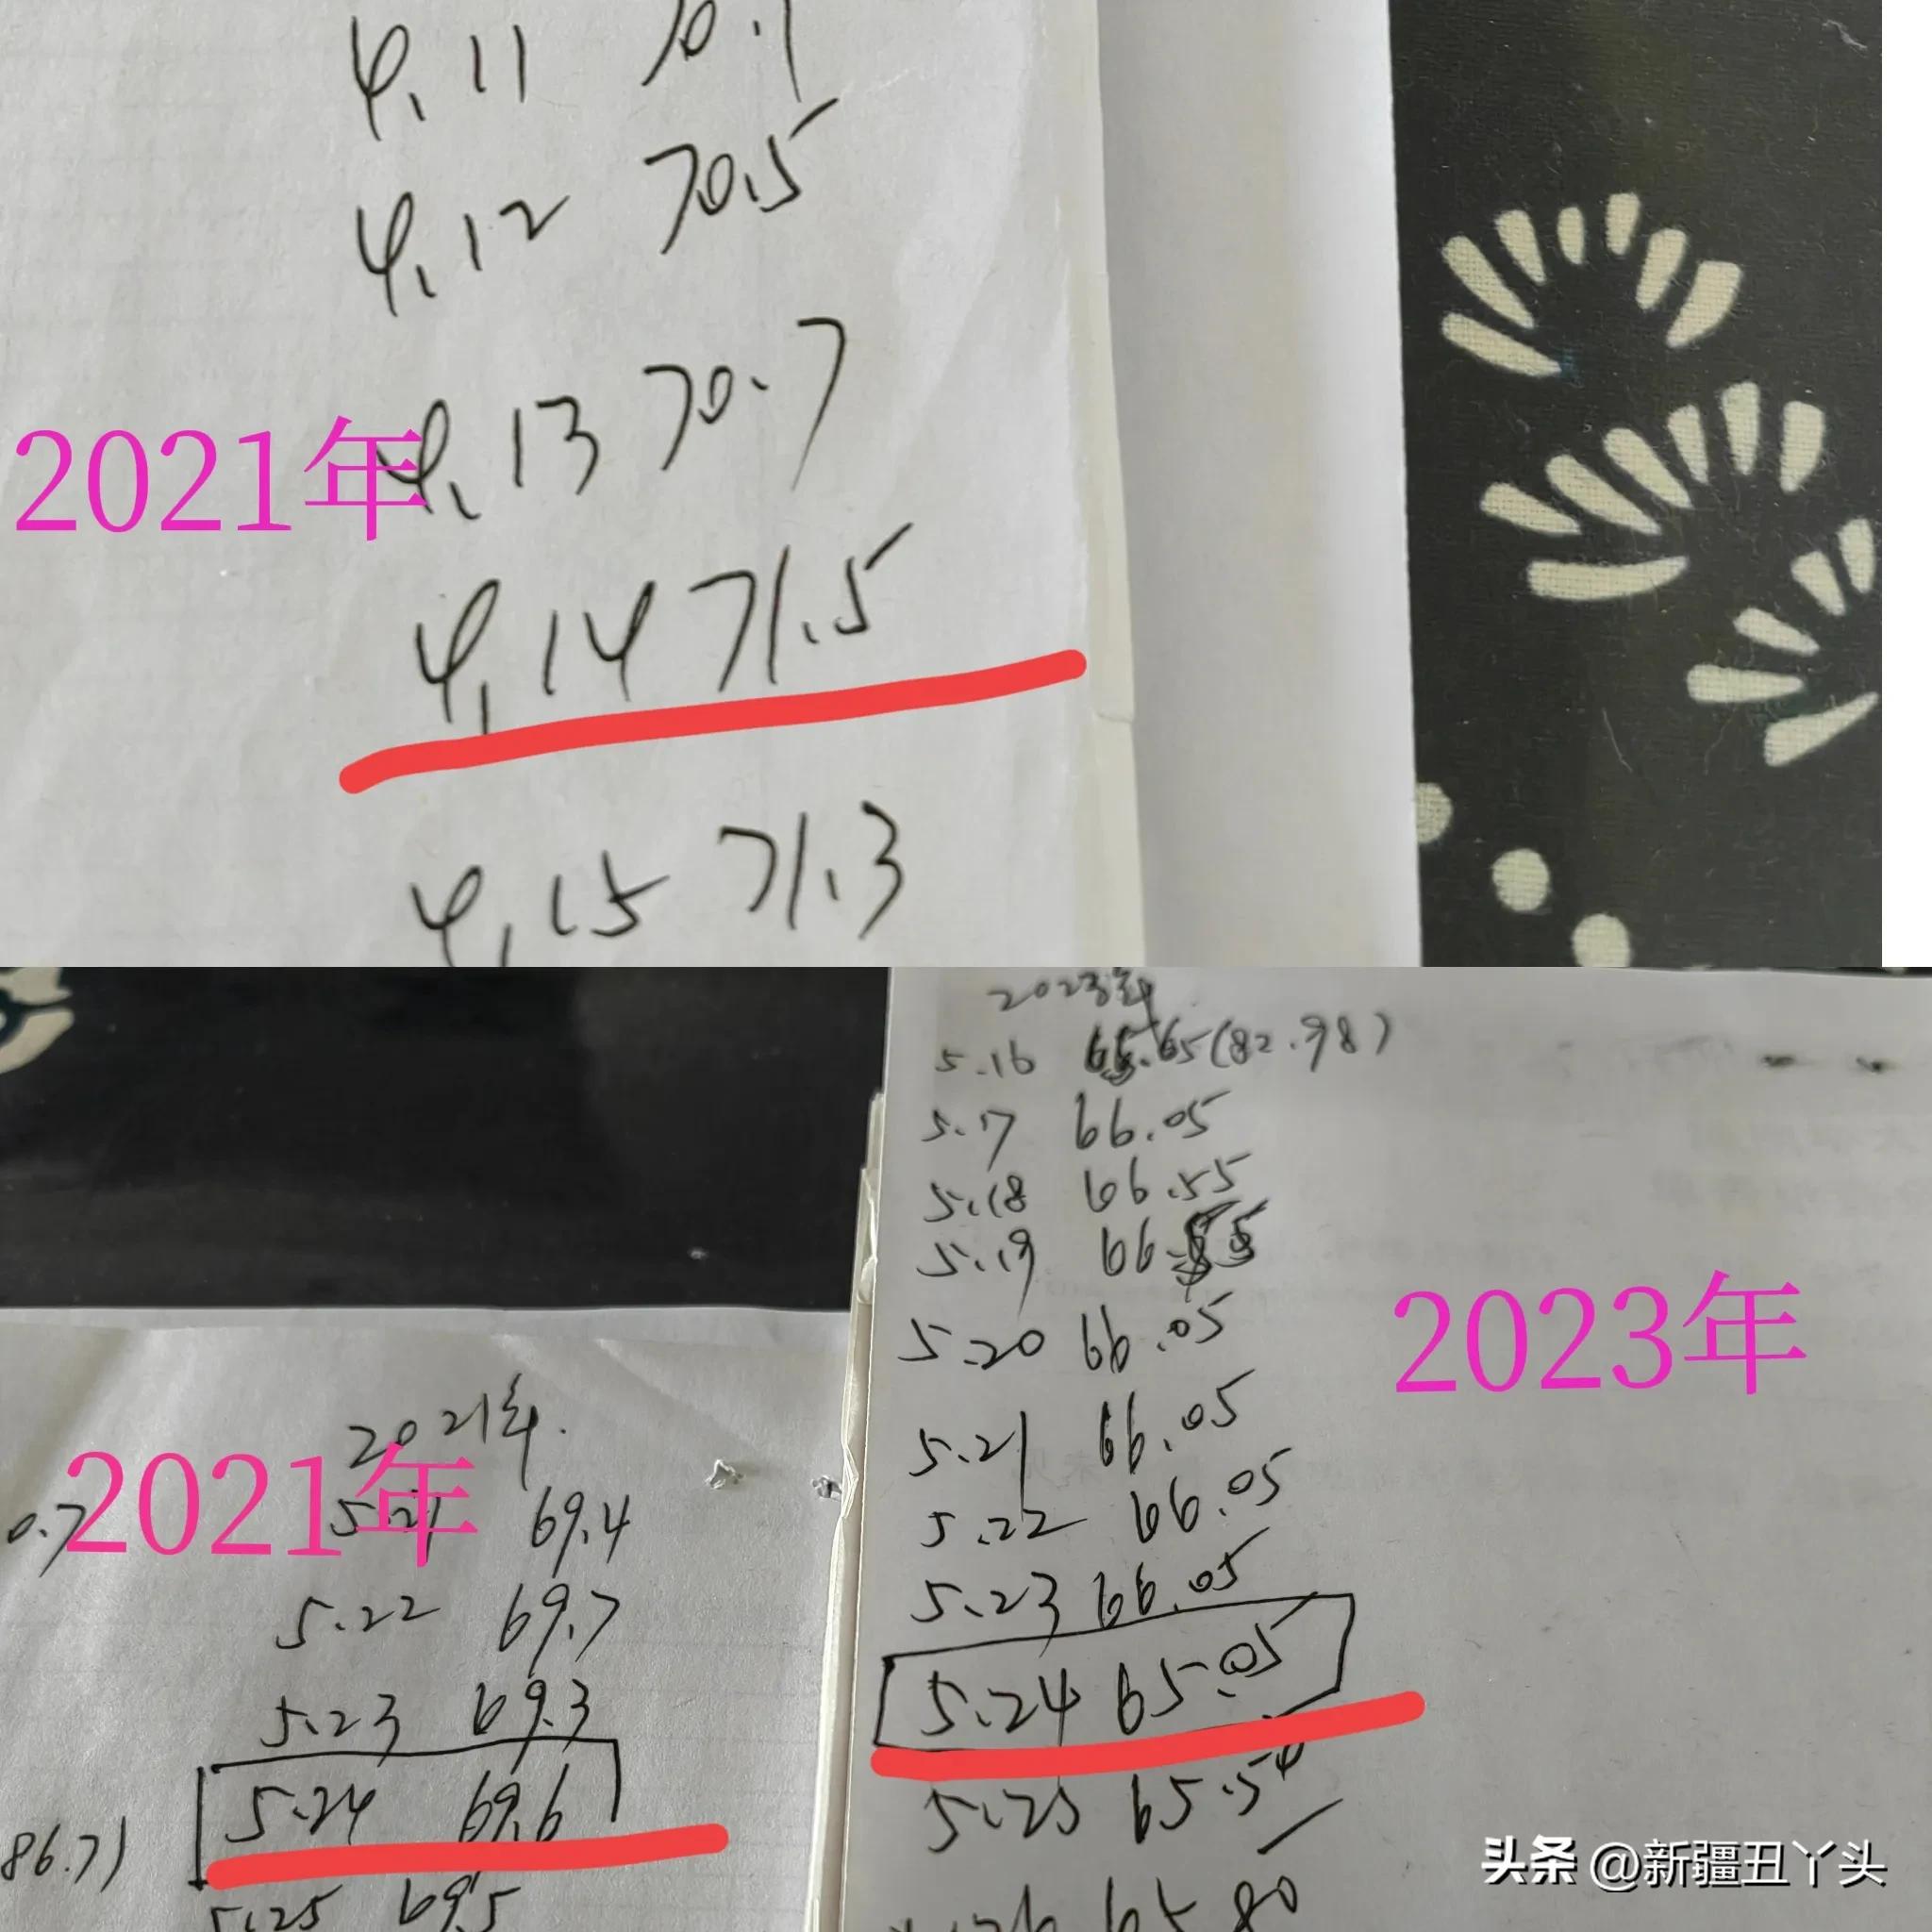 4.11 70.1
4.12 70.5
4.13 70.7
2021年
4.14 71.5
4.15 71.3
2021年
2021年
0.7
5.21 69.4
5.22 69.7
5.23 69.3
5.24 69.6
86.7)
5.25 69.5
2023年
5.16 65(82.98)
5.17 66.05
5.18 66.55
5.19 66.
5.20 66.05
2023年
5.21 66.05
5.22 66.05
5.23 66.05
5.24 65.05
5.25 65.5
65.80
头条 @新疆丑丫头